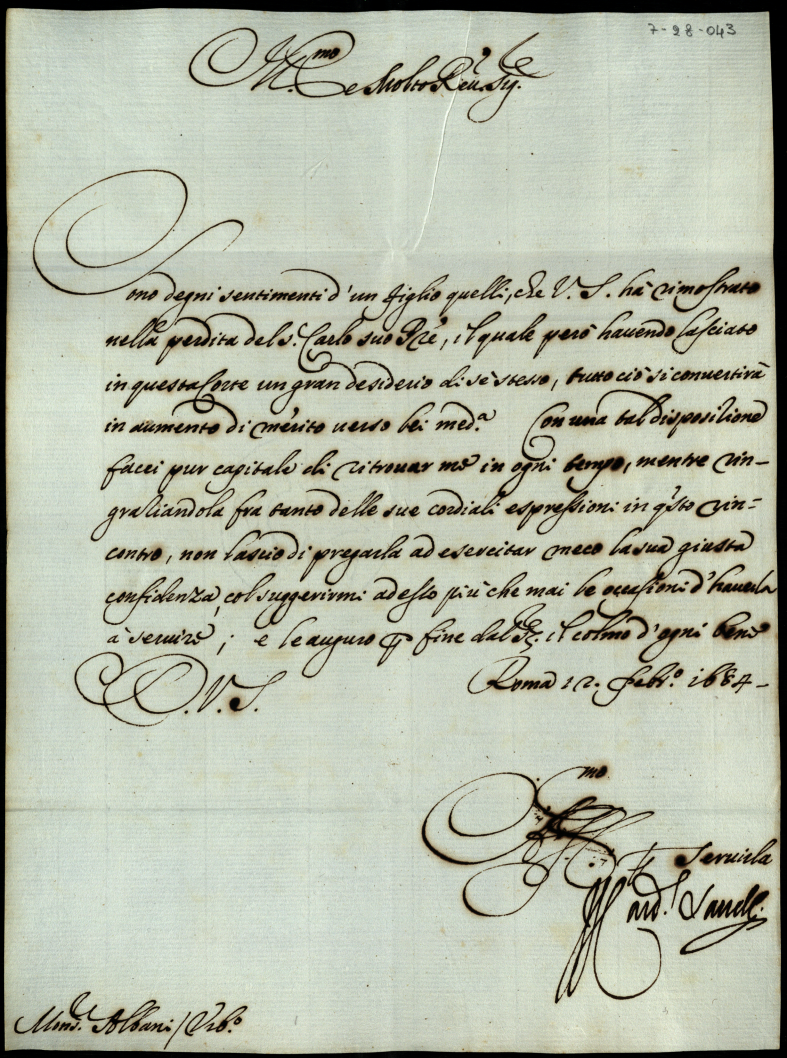 7-28-043
Ill.mo e Molto Reu. Sig.re
Sono degni sentimenti d'un figlio quelli, che V. S. hà rimostrato
nella perdita del s.r Carlo suo Pre, il quale però hauendo lasciato
in questa Corte un gran desiderio di sè stesso, tutto ciò si conuertirà
in aumento di mérito uerso lei med.a Con una tal dispositione
facci pur capitale di ritrouar mè in ogni tempo, mentre rin-
gratiandola fra tanto delle sue cordiali espressioni in q'sto rin=
contro, non lascio di pregarla ad esercitar meco la sua giusta
confidenza, col suggerirmi adesso più che mai le occasioni d'hauerla
à seruire; e le auguro p fine dal S.re il colmo d'ogni bene
Roma 12. Febr.o 1684-
D. V. S.
Aff.mo
Seruirla
Card.l
Mons.re Albani / Urb.o